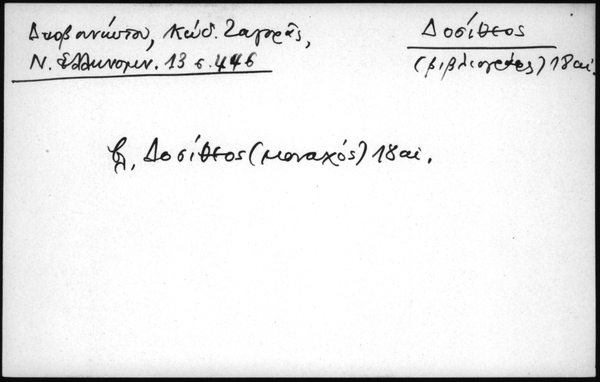 Διοβουνιώτου, Κώδ. Ζαγορᾶς,
Ν. Ἑλληνομν. 13 σ. 446
Δοσίθεος
(βιβλιογράφος) 18 αἰ.
βλ. Δοσίθεος (μοναχός) 18 αἰ.